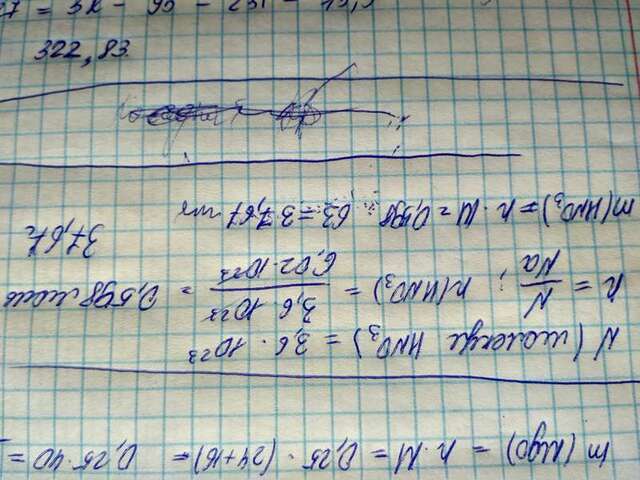 m(MgO) = n·M = 0,25 · (24+16) = 0,25·40 =
N(молекул HNO₃) = 3,6 · 10²³
n = N/Na ; n(HNO₃) = 3,6·10²³/6,02·10²³ = 0,598 моль
m(HNO₃) = n·M = 0,598 · 63 = 37,67
37,67